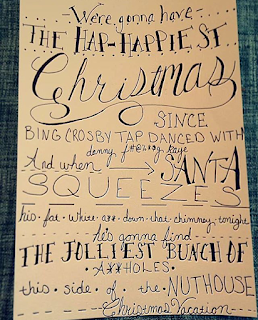 We're gonna have
THE HAP-HAPPIEST
Christmas
SINCE
BING CROSBY TAP DANCED WITH
danny f#@%*g kaye
And when SANTA
SQUEEZES
his fat white a** down that chimney tonight
he's gonna find
THE JOLLIEST BUNCH OF
A**HOLES
this side of the NUTHOUSE
Christmas Vacation